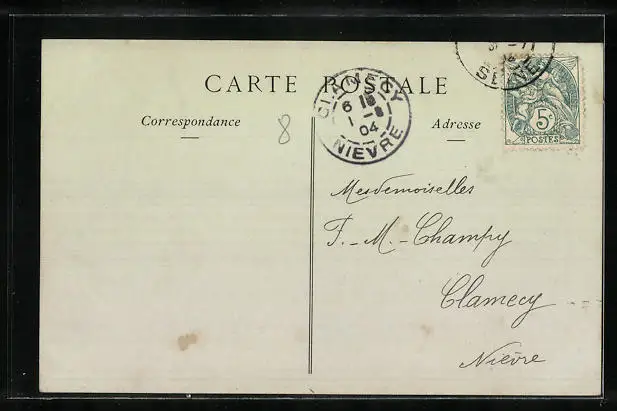 CARTE POSTALE
Correspondance
Adresse
8
6 18
1 -8
04
NIEVRE
5c
POSTES
Mesdemoiselles
F.-M.-Champy
Clamecy
Nièvre